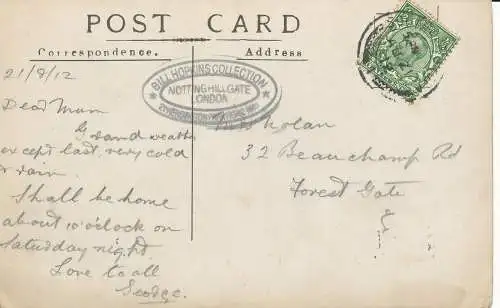 POST CARD
Correspondence.
Address
21/8/12
Dear Mum
Grand weather
except last, very cold
& rain.
Shall be home
about 10 o'clock on
Saturday night.
Love to all
George.
BILL HOPKINS COLLECTION
NOTTING HILL GATE
LONDON
Nolan
32 Beauchamp Rd
Forest Gate
E